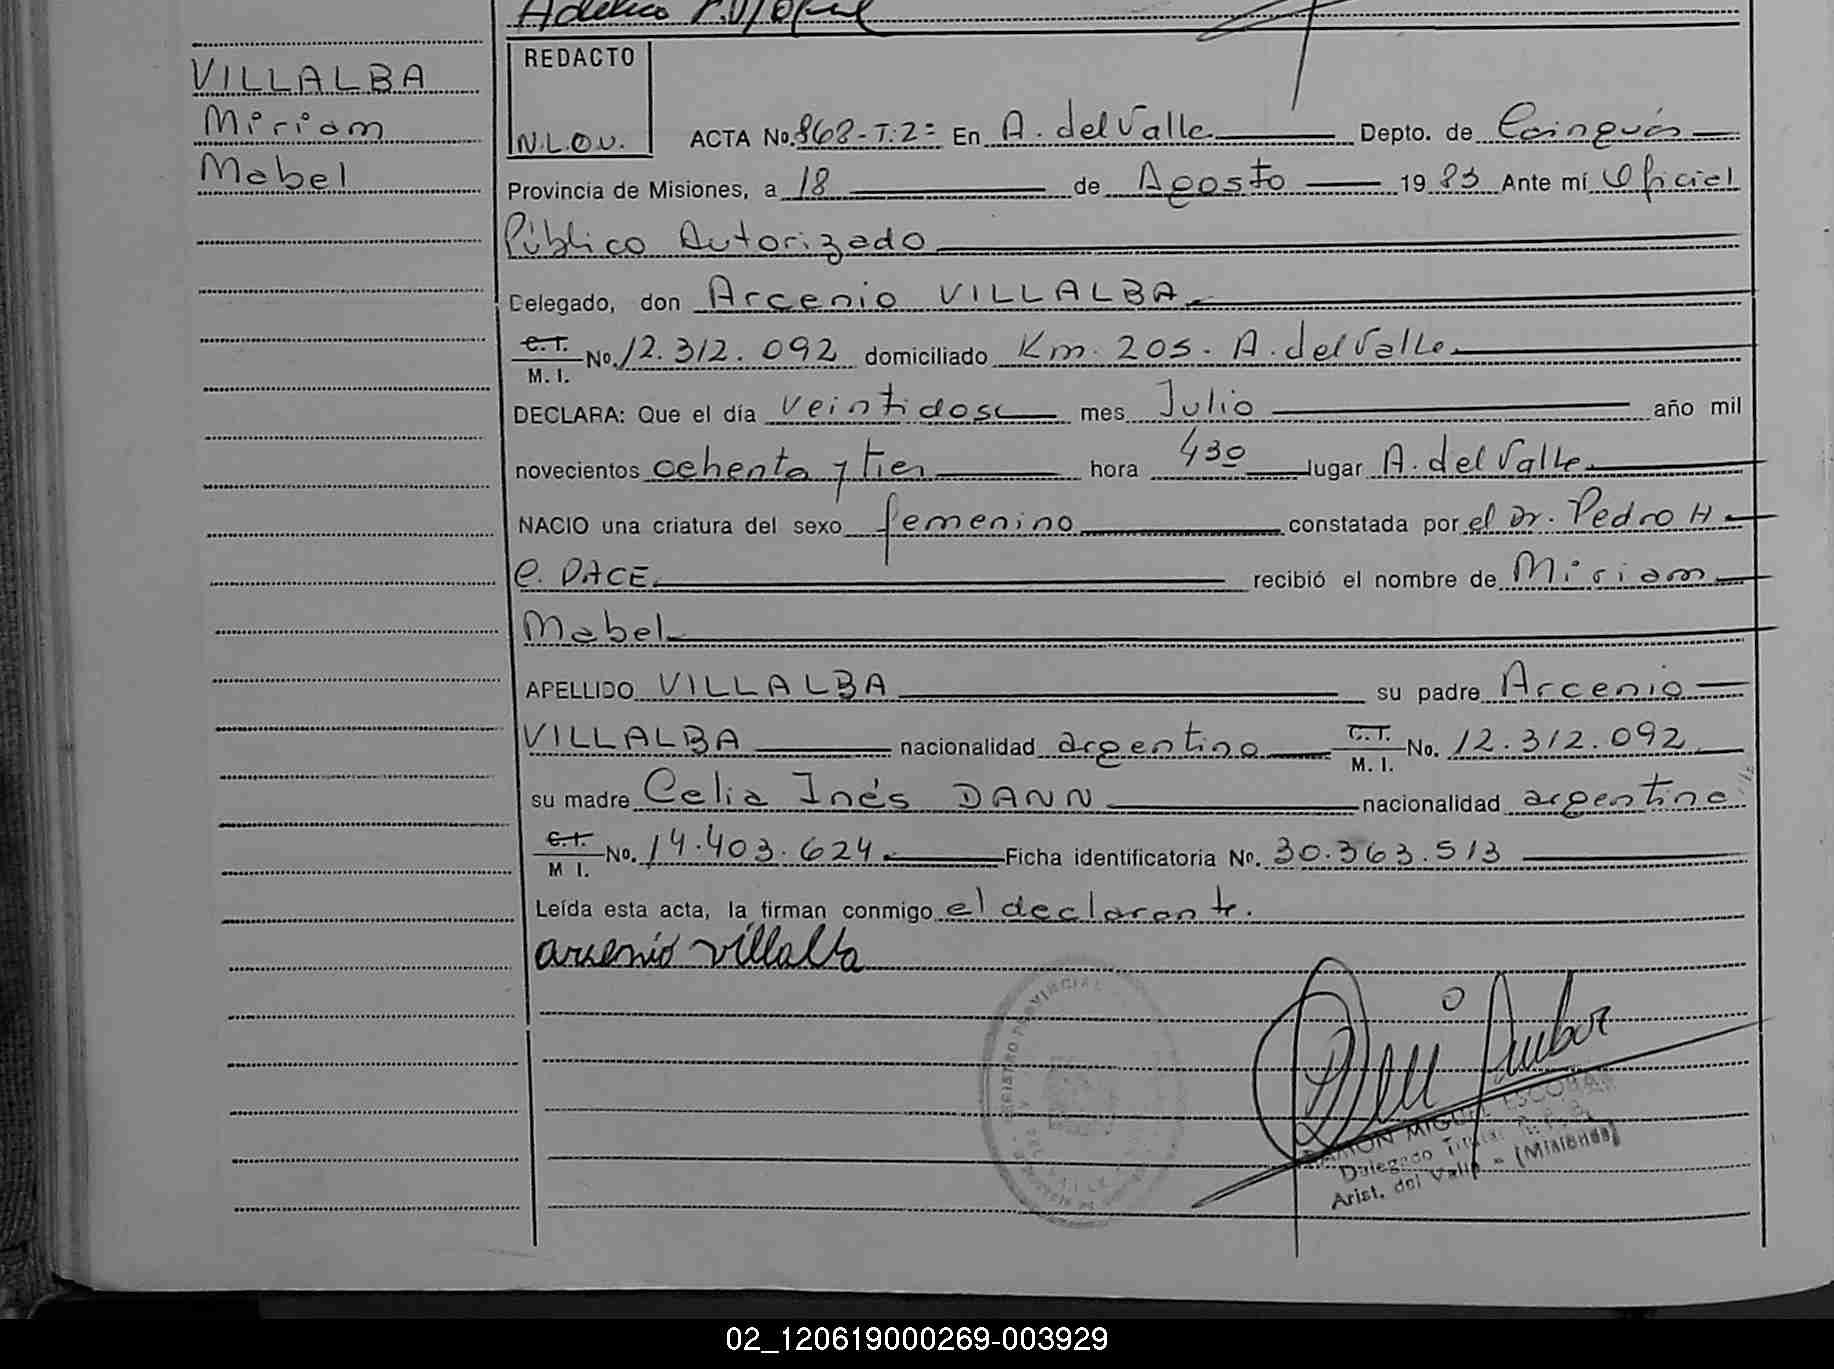 VILLALBA
Miriam
Mabel
REDACTO
N.L.O.V.
ACTA No. 868-T:2= En A. del Valle Depto. de Cainguás
Provincia de Misiones, a 18 de Agosto 19 83 Ante mí Oficial
Público Autorizado
Delegado, don Arcenio VILLALBA
C.I. M. I. No. 12.312.092 domiciliado Km. 205. A. del Valle
DECLARA: Que el día veintidos mes Julio año mil
novecientos ochenta y tres hora 430 lugar A. del Valle
NACIO una criatura del sexo femenino constatada por el Dr. Pedro H
C. DACE. recibió el nombre de Miriam
Mabel
APELLIDO VILLALBA su padre Arcenio
VILLALBA nacionalidad argentino C.I. M. I. No. 12.312.092
su madre Celia Inés DANN nacionalidad argentina
C.I. M I. No. 14.403.624 Ficha identificatoria No. 30.363.513
Leída esta acta, la firman conmigo el declarante.
arsenio villalba
RAMON MIGUEL ESCOBAR
Delegado Titular
Arist. del Valle - (Misiones)
02_120619000269-003929